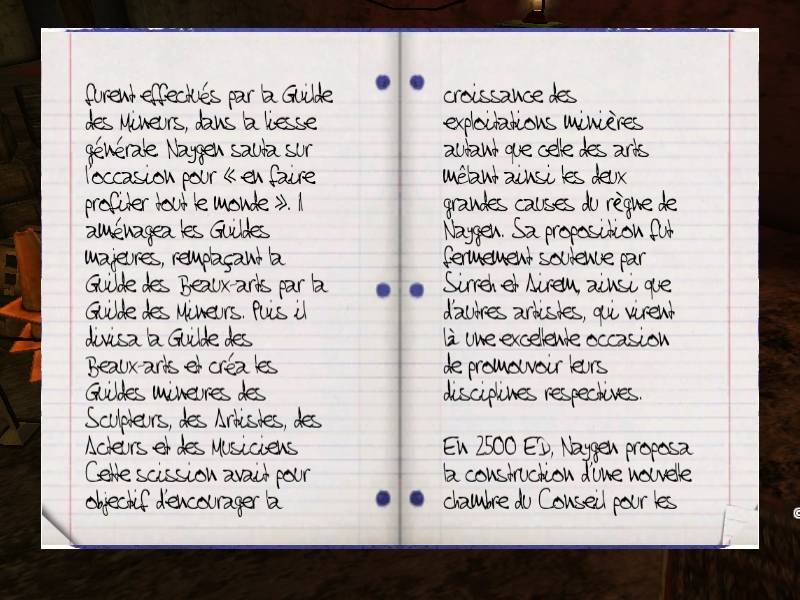 furent effectués par la Guilde
des Mineurs, dans la liesse
générale. Naygen sauta sur
l'occasion pour « en faire
profiter tout le monde ». Il
aménagea les Guildes
majeures, remplaçant la
Guilde des Beaux-arts par la
Guilde des Mineurs. Puis il
divisa la Guilde des
Beaux-arts et créa les
Guildes mineures des
Sculpteurs, des Artistes, des
Acteurs et des Musiciens
Cette scission avait pour
objectif d'encourager la
croissance des
exploitations minières
autant que celle des arts
mêlant ainsi les deux
grandes causes du règne de
Naygen. Sa proposition fut
fermement soutenue par
Sirreh et Airem, ainsi que
d'autres artistes, qui virent
là une excellente occasion
de promouvoir leurs
disciplines respectives.
En 2500 ED, Naygen proposa
la construction d'une nouvelle
chambre du Conseil pour les
©